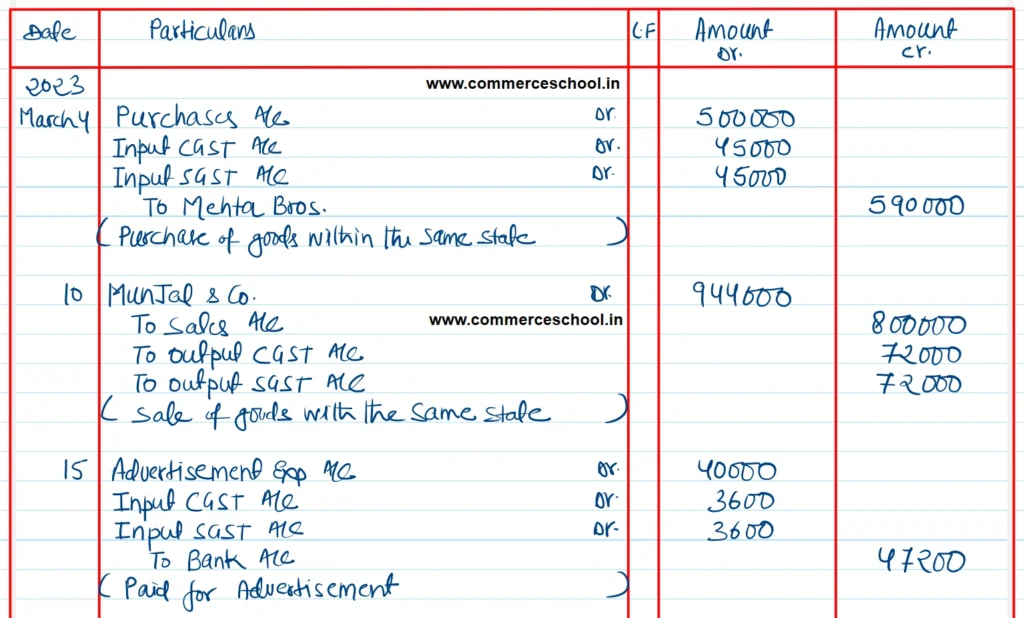 Date Particulars L.F Amount Dr. Amount Cr.
2023 www.commerceschool.in
March 4 Purchases A/c Dr. 500000
Input CGST A/c Dr. 45000
Input SGST A/c Dr. 45000
To Mehta Bros. 590000
(Purchase of goods within the same state)
10 MunJal & Co. Dr. 944000
To Sales A/c www.commerceschool.in 800000
To output CGST A/c 72000
To output SGST A/c 72000
(Sale of goods with the same state)
15 Advertisement Exp A/c Dr. 40000
Input CGST A/c Dr. 3600
Input SGST A/c Dr. 3600
To Bank A/c 47200
(Paid for Advertisement)